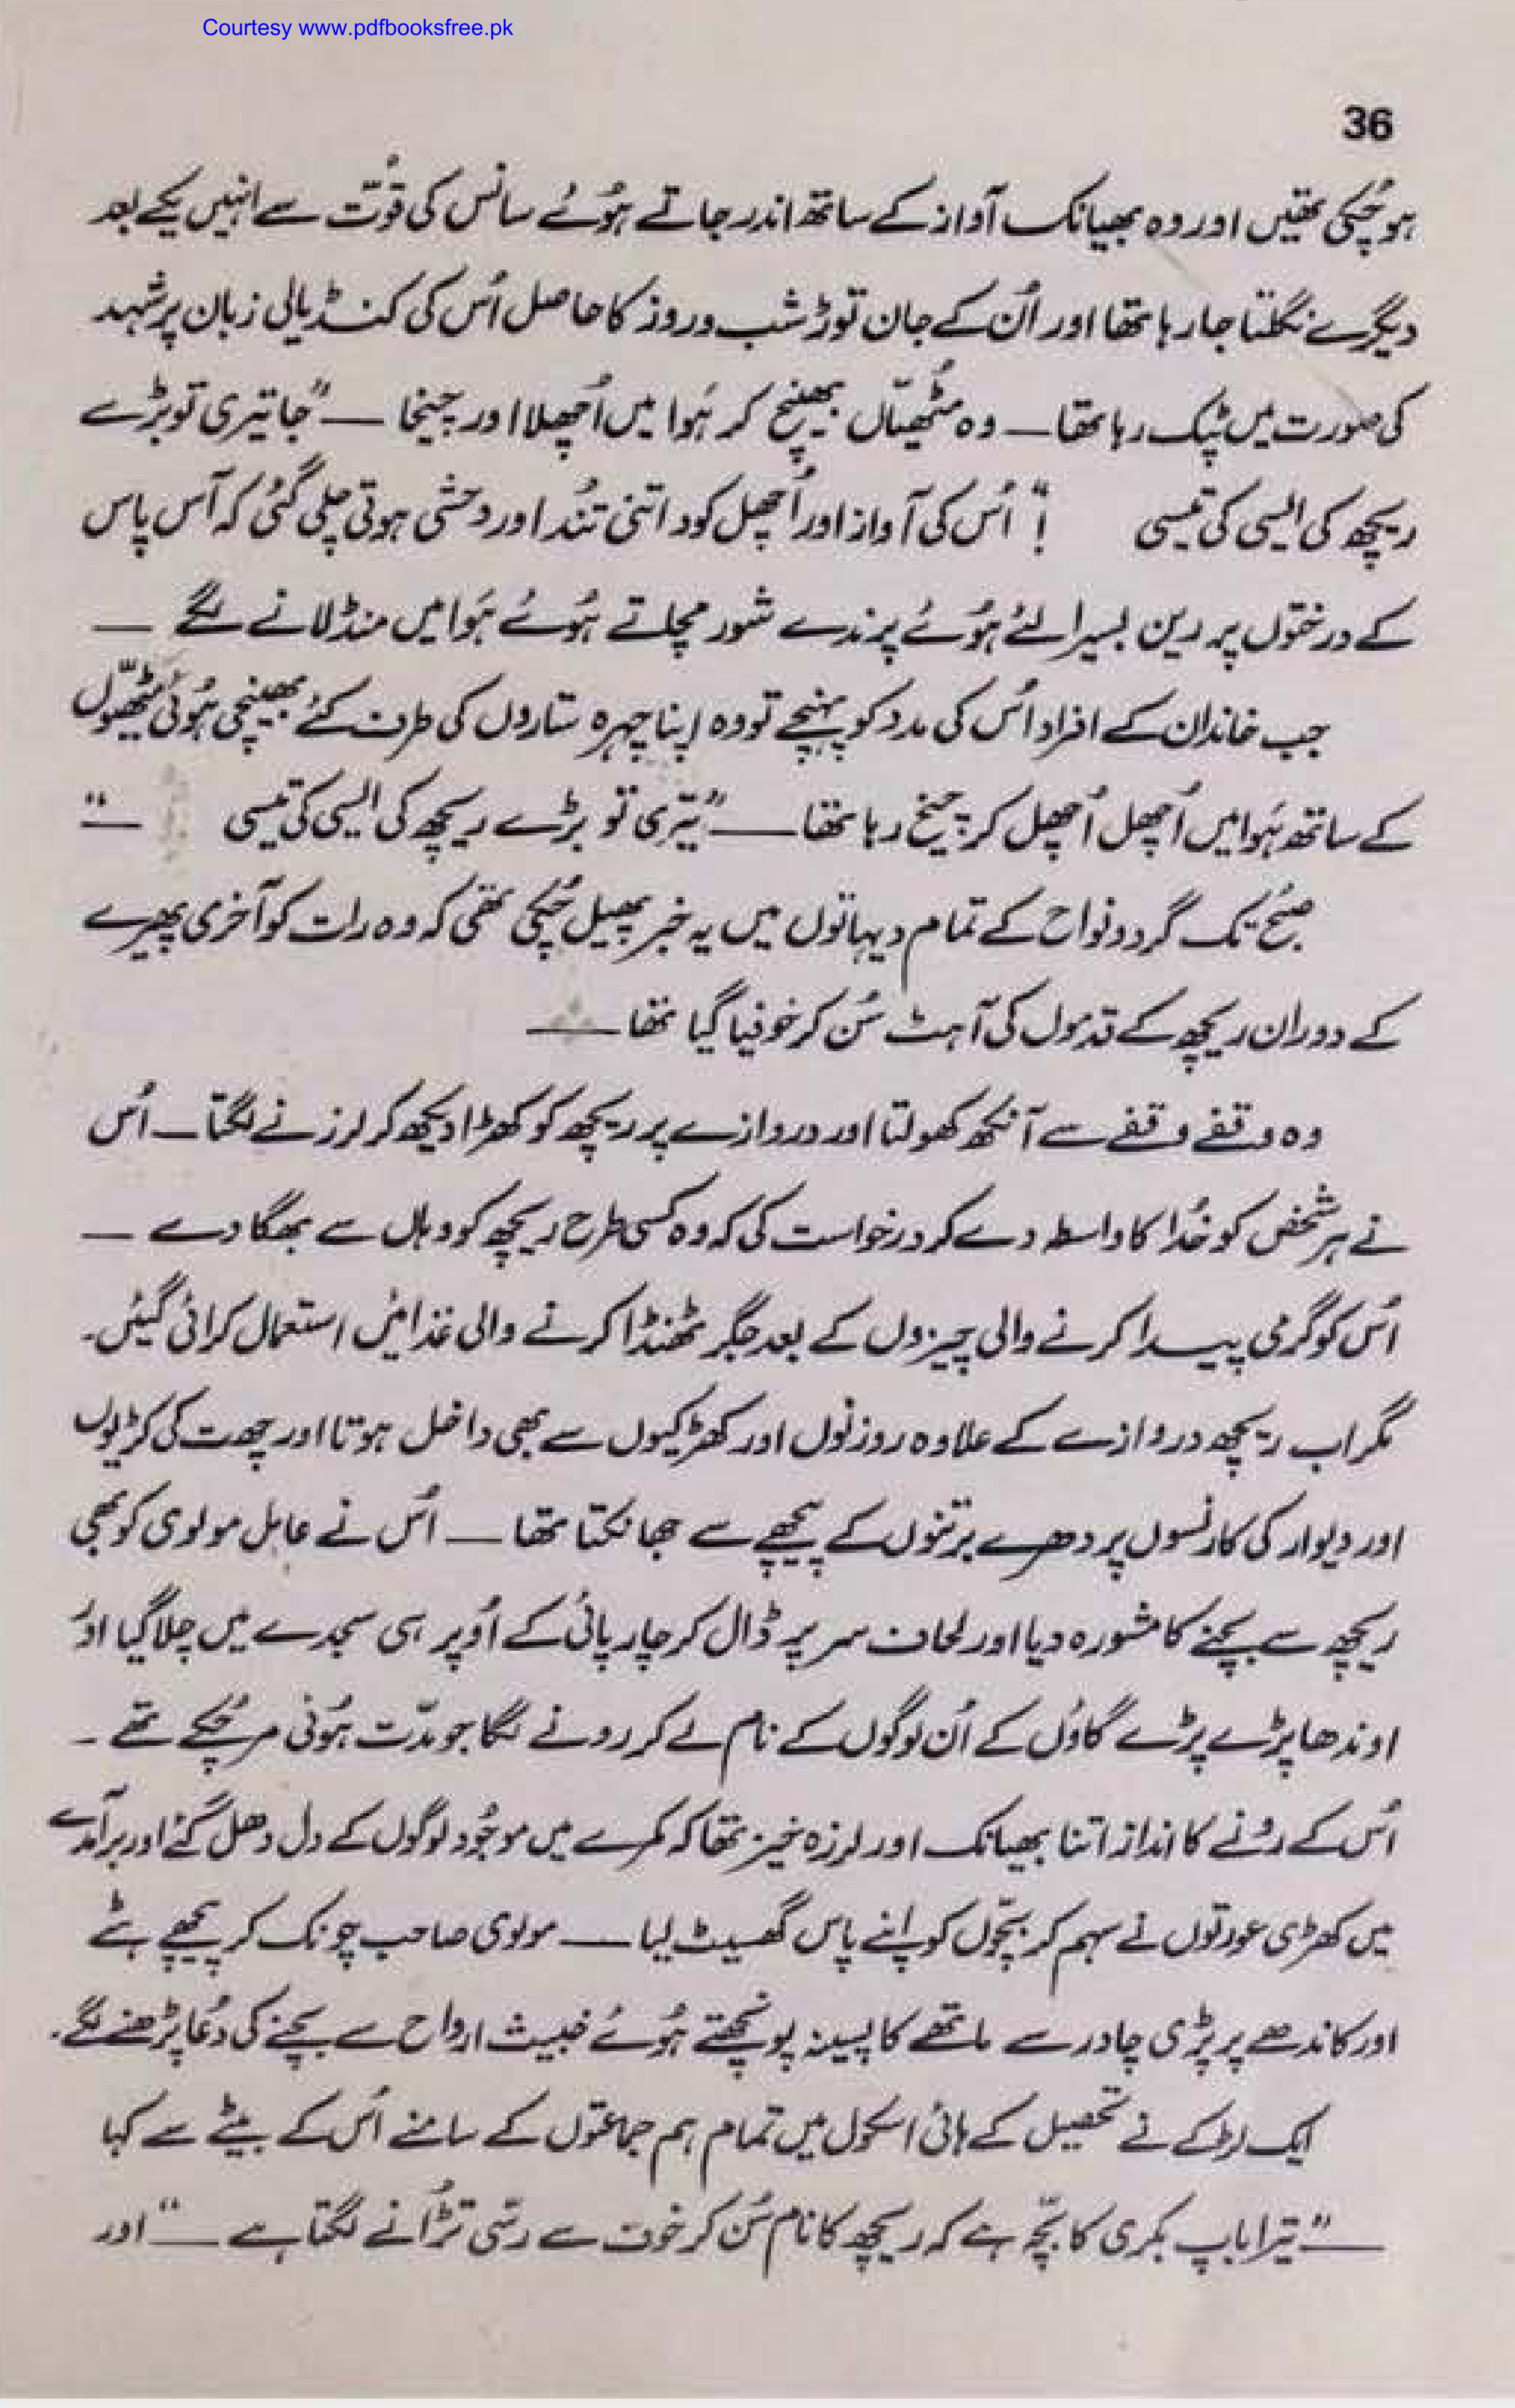 Courtesy www.pdfbooksfree.pk
36
ہو چُکی تھیں اور وہ بھیانک آواز کے ساتھ اندر جاتے ہُوئے سانس کی قُوّت سے انہیں یکے بعد
دیگرے نگلتا جا رہا تھا اور اُن کے جان توڑ شب و روز کا حاصل اُس کی کنڈیالی زبان پر شہد
کی صورت میں ٹپک رہا تھا — وہ مُٹھیّاں بھینچ کر ہَوا میں اُچھلا اور چیخا — ”جا تیری تو بڑے
ریچھ کی ایسی کی تیسی !“ اُس کی آواز اور اُچھل کود اتنی تُند اور وحشی ہوتی چلی گئی کہ آس پاس
کے درختوں پر رین بسیرا لئے ہُوئے پرندے شور مچاتے ہُوئے ہَوا میں منڈلانے لگے —
جب خاندان کے افراد اُس کی مدد کو پہنچے تو وہ اپنا چہرہ ستاروں کی طرف کئے بھینچی ہُوئی مٹھیّوں
کے ساتھ ہَوا میں اُچھل اُچھل کر چیخ رہا تھا — ”تیری تو بڑے ریچھ کی ایسی کی تیسی —“
صبُح تک گرد و نواح کے تمام دیہاتوں میں یہ خبر پھیل چُکی تھی کہ وہ رات کو آخری پھیرے
کے دوران ریچھ کے قدموں کی آہٹ سُن کر خوفیا گیا تھا —
وہ وقفے وقفے سے آنکھ کھولتا اور دروازے پر ریچھ کو کھڑا دیکھ کر لرزنے لگتا — اُس
نے ہر شخص کو خُدا کا واسطہ دے کر درخواست کی کہ وہ کسی طرح ریچھ کو وہاں سے بھگا دے —
اُس کو گرمی پیدا کرنے والی چیزوں کے بعد جگر ٹھنڈا کرنے والی غذائیں استعمال کرائی گیئں۔
مگر اب ریچھ دروازے کے علاوہ روزنوں اور کھڑکیوں سے بھی داخل ہوتا اور چھت کی کڑیوں
اور دیوار کی کارنسوں پر دھرے برتنوں کے پیچھے سے جھانکتا تھا — اُس نے عامل مولوی کو بھی
ریچھ سے بچنے کا مشورہ دیا اور لحاف سر پر ڈال کر چارپائی کے اُوپر ہی سجدے میں چلا گیا اور
اوندھا پڑے پڑے گاؤں کے اُن لوگوں کے نام لے کر رونے لگا جو مدّت ہُوئی مر چُکے تھے ۔
اُس کے رونے کا انداز اتنا بھیانک اور لرزہ خیز تھا کہ کمرے میں موجُود لوگوں کے دل دھل گئے اور برآمدے
میں کھڑی عورتوں نے سہم کر بچّوں کو اپنے پاس گھسیٹ لیا — مولوی صاحب چونک کر پیچھے ہٹے
اور کاندھے پر پڑی چادر سے ماتھے کا پسینہ پونچھتے ہُوئے خبیث ارواح سے بچنے کی دُعا پڑھنے لگے۔
ایک لڑکے نے تحصیل کے ہائی اسکول میں تمام ہم جماعتوں کے سامنے اُس کے بیٹے سے کہا
— ”تیرا باپ بکری کا بچّہ ہے کہ ریچھ کا نام سُن کر خوف سے رسّی تڑُانے لگتا ہے —“ اور